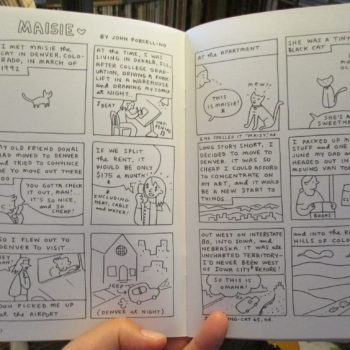 MAISIE
BY JOHN PORCELLINO
I MET MAISIE THE
CAT IN DENVER, COLO-
RADO, IN MARCH OF
1992
AT THE TIME, I WAS
LIVING IN DEKALB, ILL.
AFTER COLLEGE GRAD-
UATION, DRIVING A FORK-
LIFT IN A WAREHOUSE
AND DRAWING MYSELF
AT NIGHT.
MY OLD FRIEND DONAL
HAD MOVED TO DENVER
AND TRIED TO CONVINCE
ME TO MOVE OUT THERE
TOO
YOU GOTTA CHECK
IT OUT, MAN!
IT'S SO NICE,
AND SO
CHEAP!
IF WE SPLIT
THE RENT, IT
WOULD BE ONLY
$175 A MONTH
INCLUDING
HEAT, CABLE
AND WATER!
SO I FLEW OUT TO
DENVER TO VISIT...
DON PICKED ME UP
AT THE AIRPORT...
(DENVER AT NIGHT)
AT THE APARTMENT
MEW!
THIS IS
MAISIE!
SHE SPELLED IT
SHE WAS A TINY
BLACK CAT
SHE'S A
SWEETHE
LONG STORY SHORT, I
DECIDED TO MOVE TO
DENVER. IT WAS SO
CHEAP I COULD AFFORD
TO CONCENTRATE ON
MY ART, AND IT WOULD
BE A NEW START TO
THINGS
I PACKED UP M
STUFF AND ONE
JUNE MY DAD A
HEADS OUT IN
MOVING VAN TO
BOOKS
OUT WEST ON INTERSTATE
80, INTO IOWA, AND
NEBRASKA. IT WAS ALL
UNCHARTED TERRITORY-
I'D NEVER BEEN WEST
OF IOWA CITY BEFORE!
SO THIS IS
OMAHA!
AND INTO THE R
HILLS OF COLOR